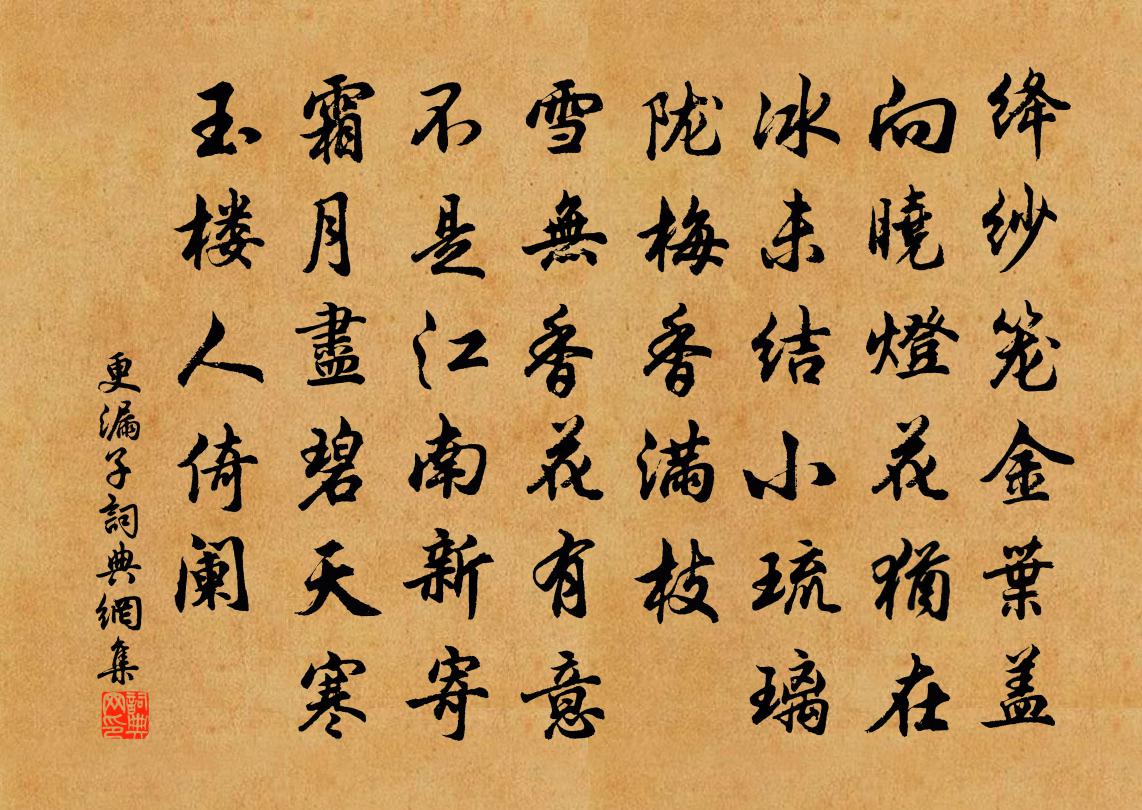 绛纱笼金葉盖
向曉燈花猶在
冰未结小琉璃
陇梅香满枝
雪無香花有意
不是江南新寄
霜月盡碧天寒
玉楼人倚阑
更漏子詞典網集
詞典网印